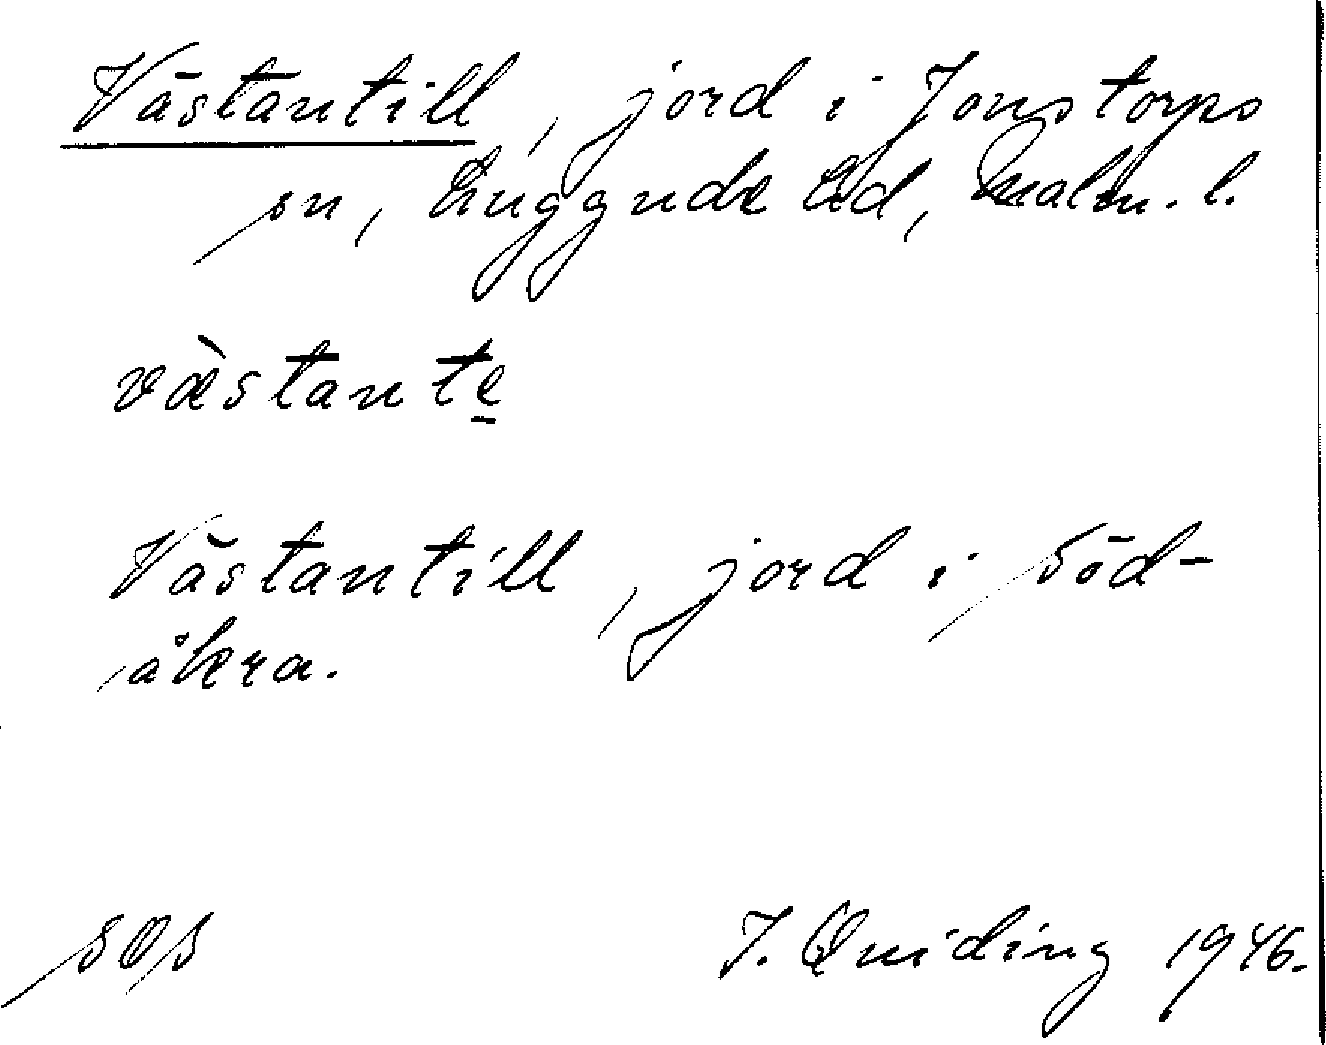 Västantill, jord i Jonstorps
sn, Luggude hd, Malm. l.
vàstante
Västantill, jord i Söd-
åkra.
SOS J. Quiding 1946.